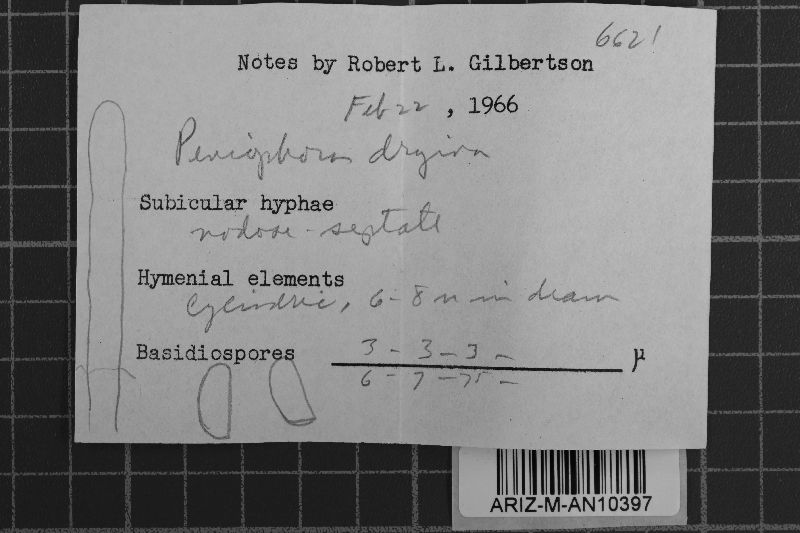 6621
Notes by Robert L. Gilbertson
Feb 22, 1966
Peniophora
Subicular hyphae
nodose-septate
Hymenial elements
Cylindric, 6-8 in diam
Basidiospores 3 - 3 - 3 - µ
6 - 7 - 75 -
ARIZ-M-AN10397